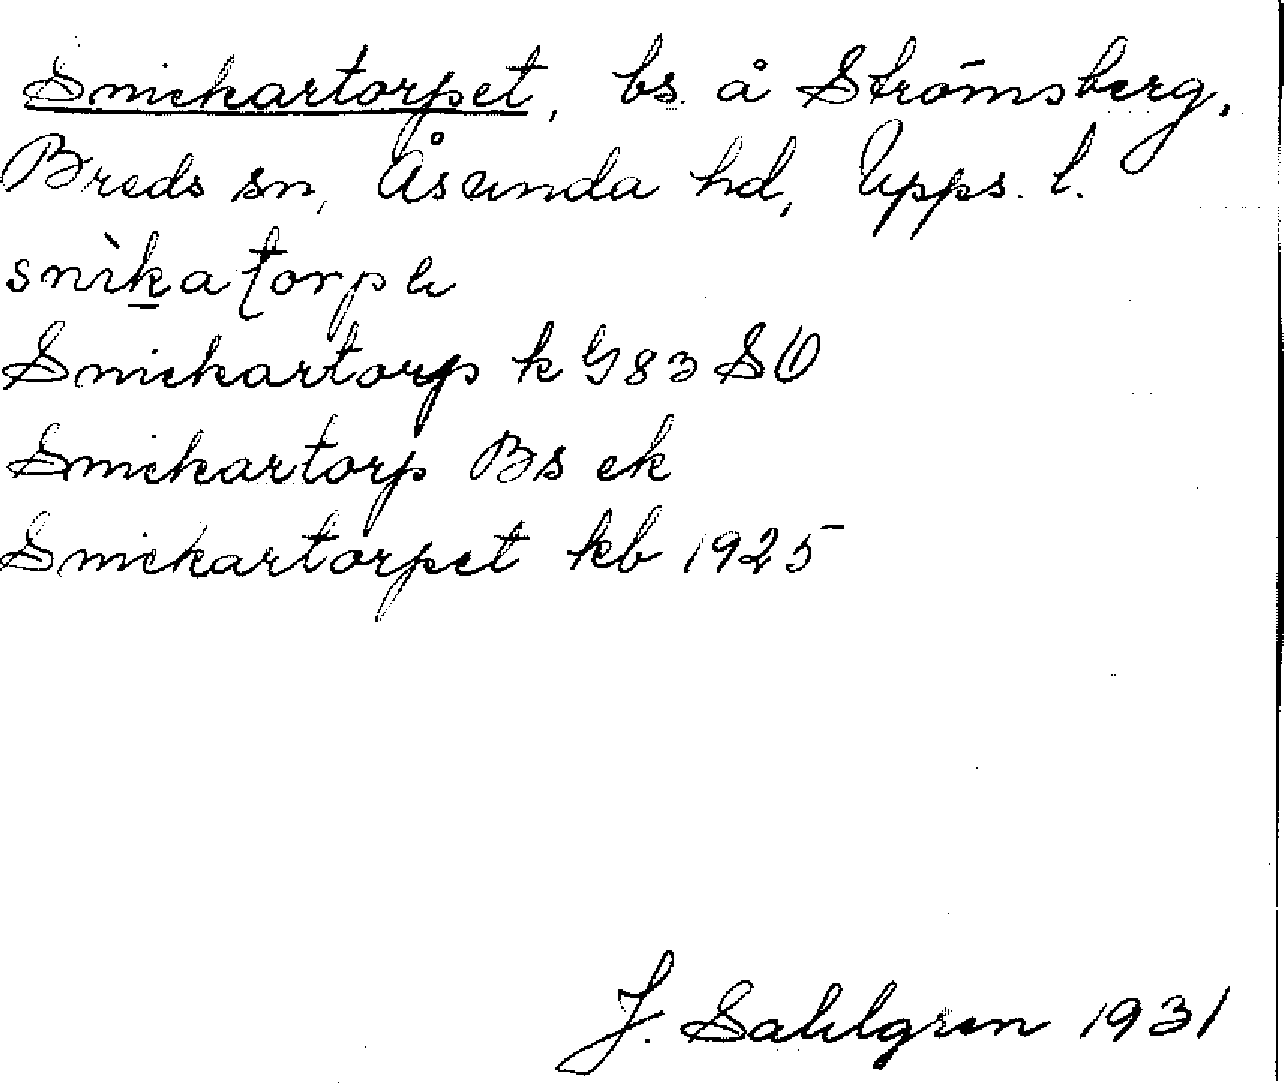 Snickartorpet, bs å Strömsberg,
Breds sn, Åsunda hd, Upps. l.
snìkatorpe
Snickartorp k G83 SO
Snickartorp Bs ek
Snickartorpet kb 1925
J. Sahlgren 1931